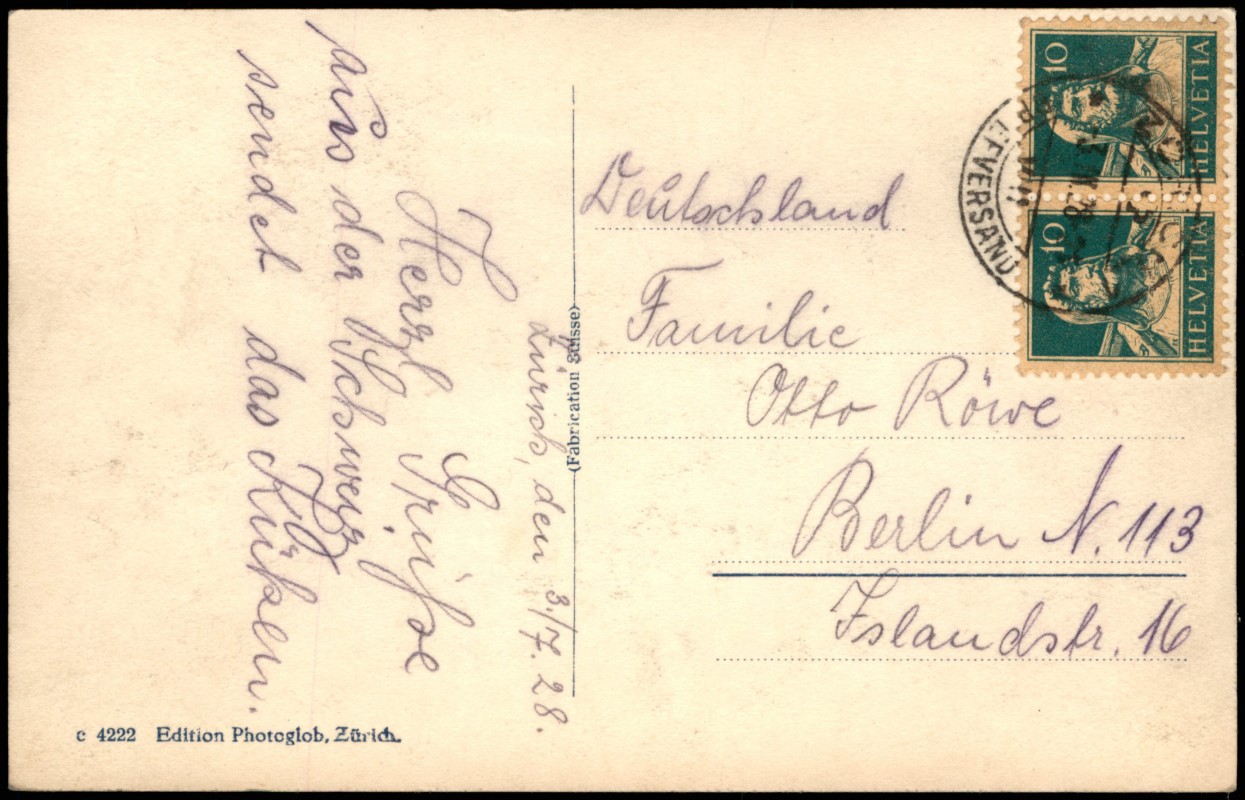 Zürich, den 3./7. 28.
Herzl. Grüße
aus der Schweiz
sendet das Kücken.
Deutschland
Familie
Otto Röwe
Berlin N. 113
Islandstr. 16
(Fabrication Suisse)
c 4222 Edition Photoglob, Zürich.
10 HELVETIA
10 HELVETIA
BRIEFVERSAND